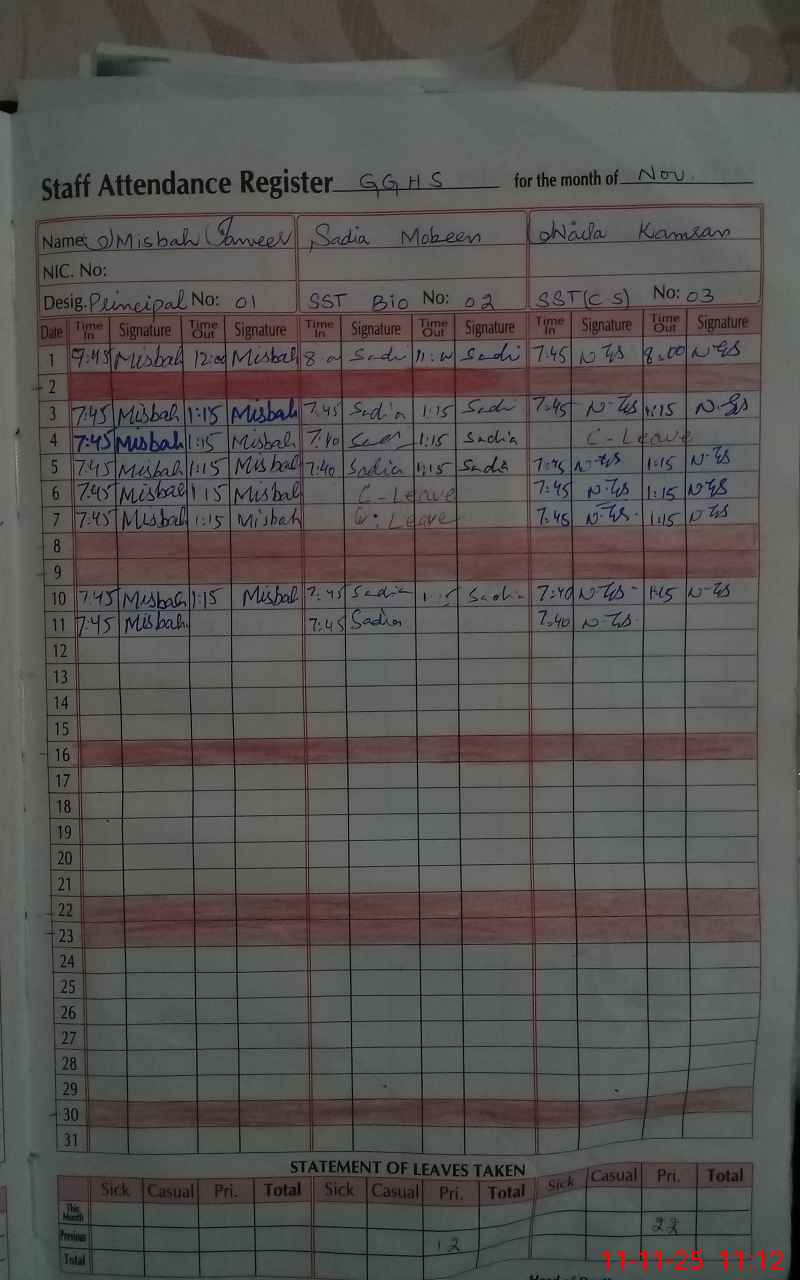 Staff Attendance Register GGHS for the month of Nov.
Name: Misbah Sadia Mobeen Naila Kamran
NIC. No:
Desig. Principal No: 01 SST Bio No: 02 SST (CS) No: 03
Date Time In Signature Time Out Signature Time In Signature Time Out Signature Time In Signature Time Out Signature
1 Misbah 12:00 Misbah Sadi Sadi 7:45 8:00
2
3 7:45 Misbah 1:15 Misbah 7:45 Sadia 1:15 Sadi 7:45 1:15
4 7:45 Misbah 1:15 Misbah 7:40 1:15 Sadia C-Leave
5 7:45 Misbah 1:15 Misbah 7:40 Sadia 1:15 Sadia 7:45 1:15
6 7:45 Misbah 1:15 Misbah C-Leave 7:45 1:15
7 7:45 Misbah 1:15 Misbah Leave 7:45 1:15
8
9
10 7:45 Misbah 1:15 Misbah 7:45 Sadia 1:15 Sadia 7:40 1:15
11 7:45 Misbah 7:45 Sadia 7:40
12
13
14
15
16
17
18
19
20
21
22
23
24
25
26
27
28
29
30
31
STATEMENT OF LEAVES TAKEN
Sick Casual Pri. Total Sick Casual Pri. Total Sick Casual Pri. Total
This Month 22
Previous 12
Total
11-11-25 11:12